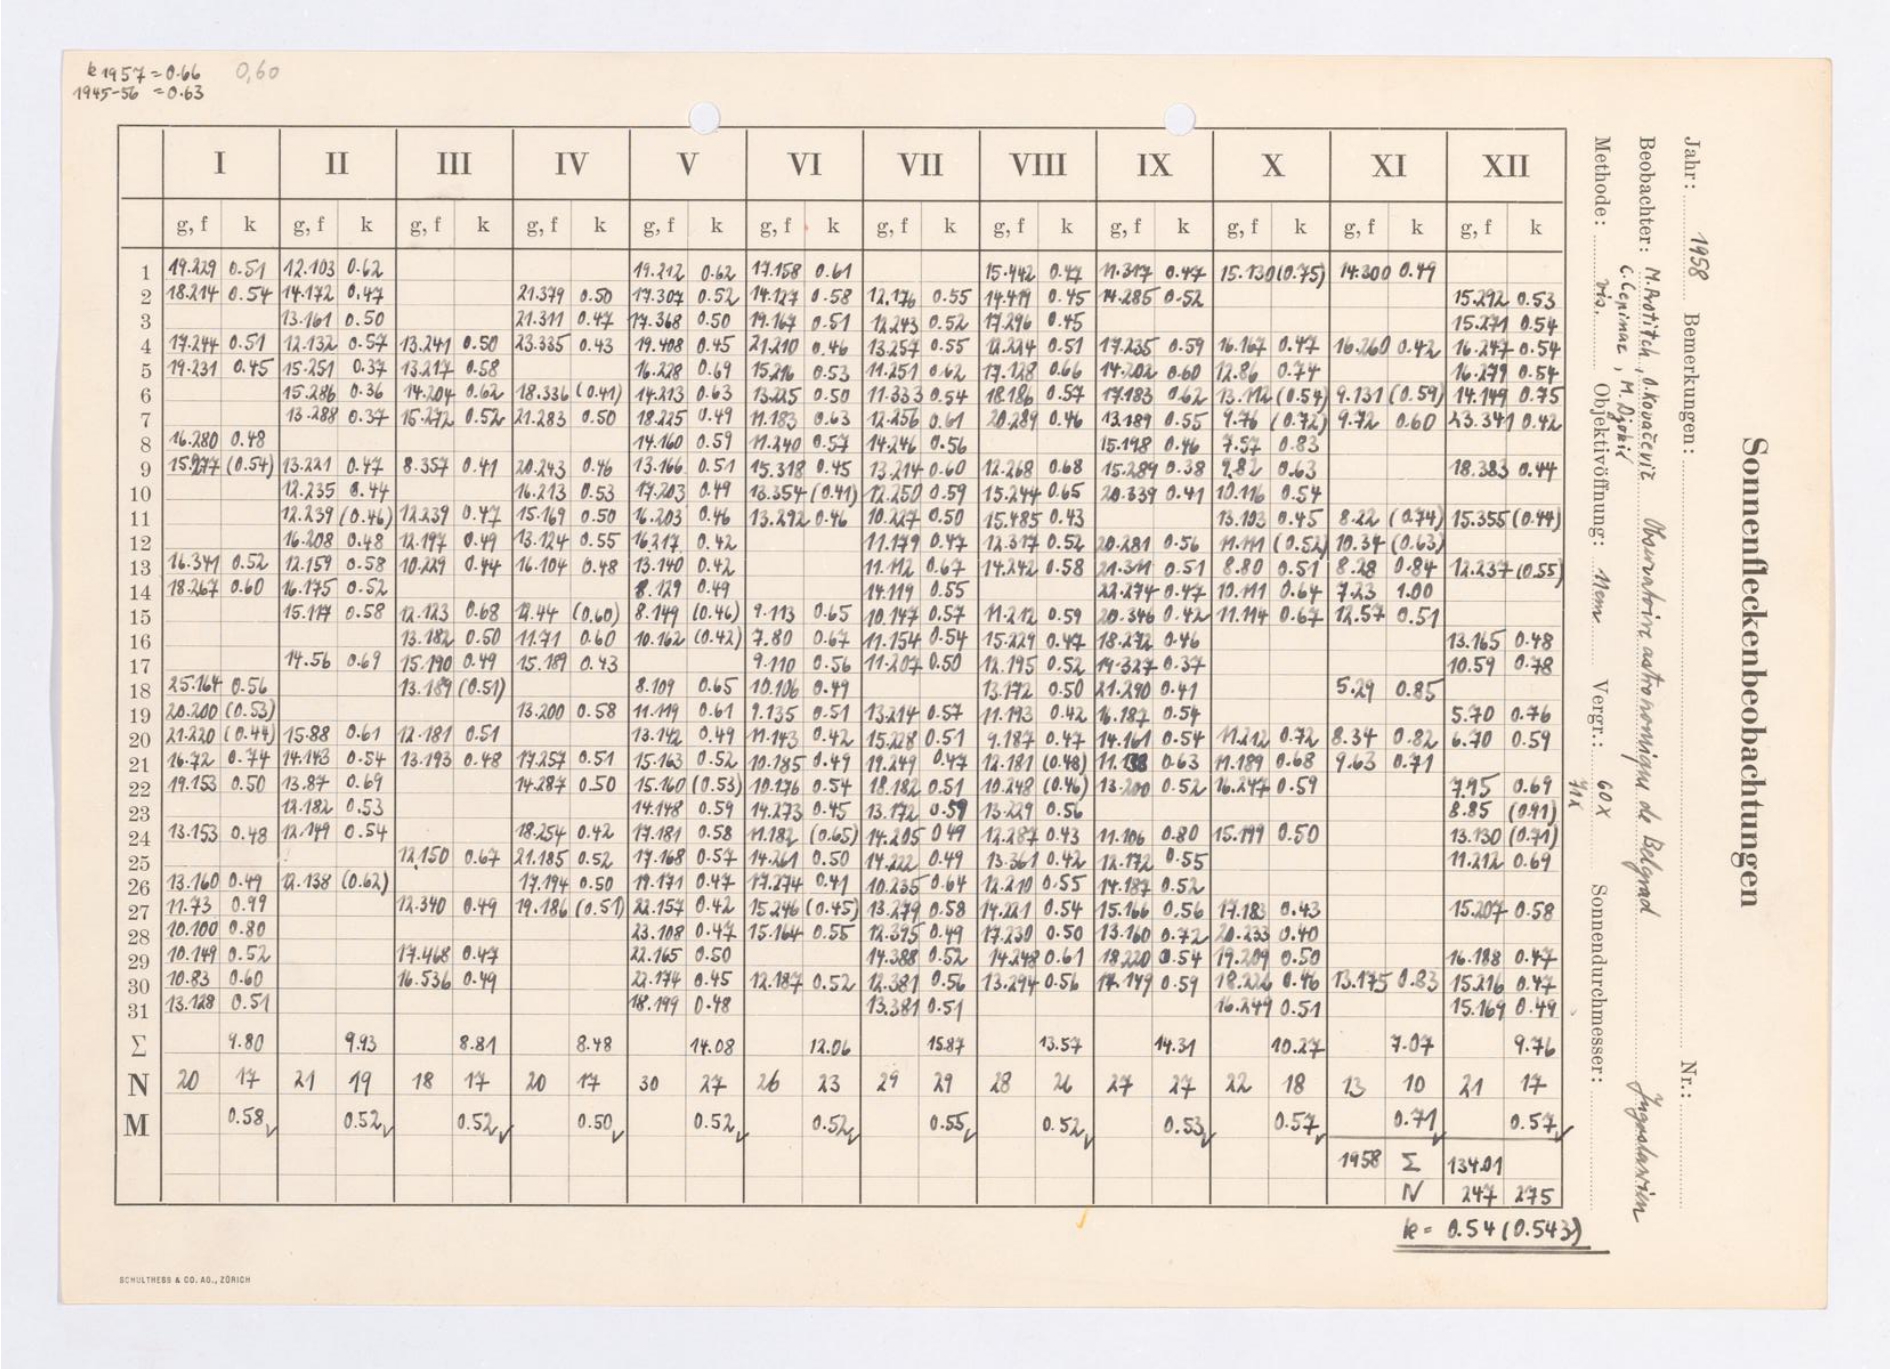 k 1957 = 0.66 0,60
1945-56 = 0.63
I II III IV V VI VII VIII IX X XI XII
g, f k g, f k g, f k g, f k g, f k g, f k g, f k g, f k g, f k g, f k g, f k g, f k
1 19.229 0.51 12.103 0.62 19.212 0.62 17.158 0.61 15.442 0.47 11.317 0.47 15.130 (0.75) 14.300 0.49
2 18.214 0.54 14.172 0.47 21.379 0.50 17.307 0.52 14.127 0.58 12.176 0.55 14.419 0.45 14.285 0.52 15.292 0.53
3 13.161 0.50 21.311 0.47 17.368 0.50 19.167 0.51 12.243 0.52 17.296 0.45 15.271 0.54
4 17.244 0.51 12.132 0.57 13.241 0.50 23.335 0.43 19.408 0.45 21.210 0.46 13.257 0.55 12.224 0.51 17.235 0.59 16.167 0.47 16.260 0.42 16.247 0.54
5 19.231 0.45 15.251 0.37 13.217 0.58 16.228 0.69 15.216 0.53 11.251 0.62 17.128 0.66 14.202 0.60 12.86 0.74 16.279 0.54
6 15.286 0.36 14.204 0.62 18.336 (0.41) 14.213 0.63 13.225 0.50 11.333 0.54 18.186 0.57 17.183 0.62 13.112 (0.54) 9.131 (0.59) 14.149 0.75
7 13.288 0.37 15.272 0.52 21.283 0.50 18.225 0.49 11.183 0.63 12.256 0.61 20.289 0.46 13.189 0.55 9.76 (0.72) 9.72 0.60 23.341 0.42
8 16.280 0.48 14.160 0.59 11.240 0.57 14.246 0.56 15.198 0.46 7.57 0.83
9 15.277 (0.54) 13.221 0.47 8.357 0.41 20.243 0.46 13.166 0.51 15.318 0.45 13.214 0.60 12.268 0.68 15.289 0.38 9.82 0.63 18.383 0.44
10 12.235 0.44 16.213 0.53 17.203 0.49 13.354 (0.41) 12.250 0.59 15.244 0.65 20.339 0.41 10.116 0.54
11 12.239 (0.46) 12.239 0.47 15.169 0.50 16.203 0.46 13.292 0.46 10.227 0.50 15.485 0.43 13.103 0.45 8.22 (0.74) 15.355 (0.44)
12 16.208 0.48 12.197 0.49 13.124 0.55 16.217 0.42 11.179 0.47 12.317 0.52 20.281 0.56 11.111 (0.52) 10.34 (0.63)
13 16.341 0.52 12.159 0.58 10.229 0.44 16.104 0.48 13.140 0.42 11.112 0.67 14.242 0.58 21.311 0.51 8.80 0.51 8.28 0.84 12.237 (0.55)
14 18.267 0.60 16.175 0.52 8.129 0.49 14.119 0.55 22.274 0.47 10.111 0.64 7.23 1.00
15 15.117 0.58 12.123 0.68 12.44 (0.60) 8.149 (0.46) 9.113 0.65 10.147 0.57 11.212 0.59 20.346 0.42 11.114 0.67 12.57 0.51
16 13.182 0.50 11.71 0.60 10.162 (0.42) 7.80 0.67 11.154 0.54 15.229 0.47 18.272 0.46 13.165 0.48
17 14.56 0.69 15.190 0.49 15.189 0.43 9.110 0.56 11.207 0.50 12.195 0.52 19.327 0.37 10.59 0.78
18 25.164 0.56 13.189 (0.51) 8.109 0.65 10.106 0.49 13.172 0.50 21.290 0.41 5.29 0.85
19 20.200 (0.53) 13.200 0.58 11.119 0.61 9.135 0.51 13.214 0.57 11.193 0.42 16.187 0.54 5.70 0.76
20 21.220 (0.44) 15.88 0.61 12.181 0.51 13.142 0.49 11.143 0.42 15.228 0.51 9.187 0.47 14.161 0.54 11.212 0.72 8.34 0.82 6.70 0.59
21 16.72 0.74 14.143 0.54 13.193 0.48 17.257 0.51 15.163 0.52 10.185 0.49 19.249 0.47 12.181 (0.48) 0.63 11.189 0.68 9.63 0.71
22 19.153 0.50 13.87 0.69 14.287 0.50 15.160 (0.53) 10.176 0.54 18.182 0.51 10.248 (0.46) 13.200 0.52 16.247 0.59 7.95 0.69
23 12.182 0.53 14.148 0.59 14.273 0.45 13.172 0.59 13.229 0.56 8.85 (0.91)
24 13.153 0.48 12.149 0.54 18.254 0.42 17.181 0.58 11.182 (0.65) 14.205 0.49 12.287 0.43 11.106 0.80 15.199 0.50 13.130 (0.71)
25 12.150 0.67 21.185 0.52 17.168 0.57 14.261 0.50 14.222 0.49 13.361 0.42 12.172 0.55 11.212 0.69
26 13.160 0.49 12.138 (0.62) 17.194 0.50 19.171 0.47 17.274 0.41 10.235 0.64 12.210 0.55 14.187 0.52
27 11.73 0.99 12.340 0.49 19.186 (0.51) 22.157 0.42 15.246 (0.45) 13.279 0.58 14.221 0.54 15.166 0.56 17.183 0.43 15.207 0.58
28 10.100 0.80 23.108 0.47 15.164 0.55 12.395 0.49 17.230 0.50 13.160 0.72 20.233 0.40
29 10.149 0.52 17.468 0.47 22.165 0.50 14.388 0.52 14.248 0.61 18.220 0.54 19.209 0.50 16.188 0.47
30 10.83 0.60 16.536 0.49 22.174 0.45 12.187 0.52 12.381 0.56 13.294 0.56 17.149 0.59 18.226 0.46 13.175 0.83 15.216 0.47
31 13.128 0.51 18.199 0.48 13.381 0.51 16.249 0.51 15.169 0.49
Σ 9.80 9.93 8.81 8.48 14.08 12.06 15.87 13.57 14.31 10.27 7.07 9.76
N 20 17 21 19 18 17 20 17 30 27 26 23 29 29 28 26 27 27 22 18 13 10 21 17
M 0.58 0.52 0.52 0.50 0.52 0.52 0.55 0.52 0.53 0.57 0.71 0.57
1958 Σ 134.01
N 247 275
k = 0.54 (0.543)
SCHULTHESS & CO. AG., ZÜRICH
Sonnenfleckenbeobachtungen
Jahr: 1958 Bemerkungen: Nr.:
Beobachter: M. Protitch, O. Kovačević Observatoire astronomique de Belgrad Jugoslavien
M. Djokić
Methode: vis. Objektivöffnung: 11cm Vergr.: 60x Sonnendurchmesser: